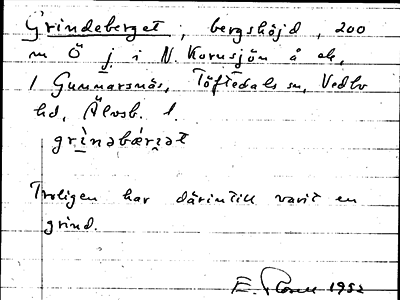 Grindeberget, bergshöjd, 200
m Ö j. i N. Kornsjön å ek.
1 Gunnarsnäs, Töftedals sn, Vedbo
hd, Älvsb. l.
grìnəbǽrı̣ət
Troligen har därintill varit en
grind.
E. 1952